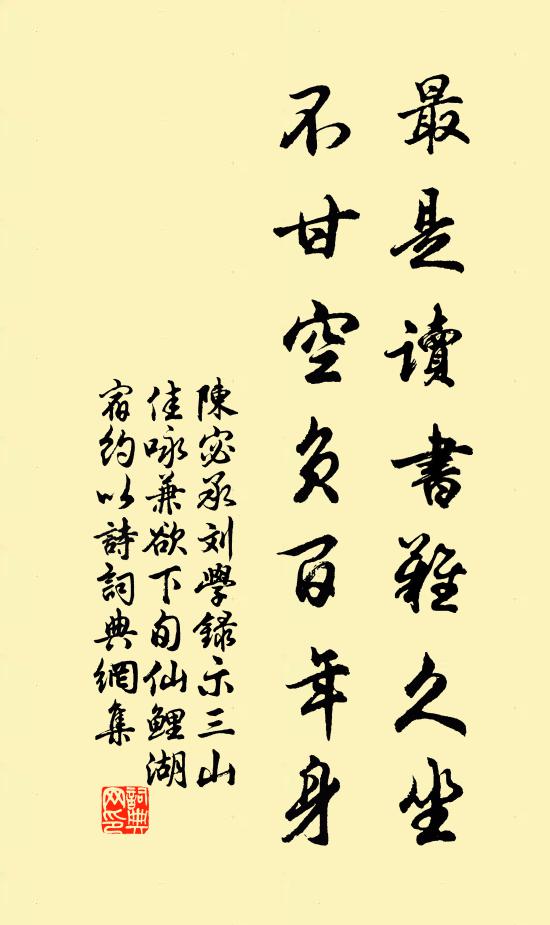 最是讀書難久坐
不甘空負百年身
陳宓承刘學録示三山
佳咏兼欲下旬仙鯉湖
宿約以詩詞典網集
詞典網印